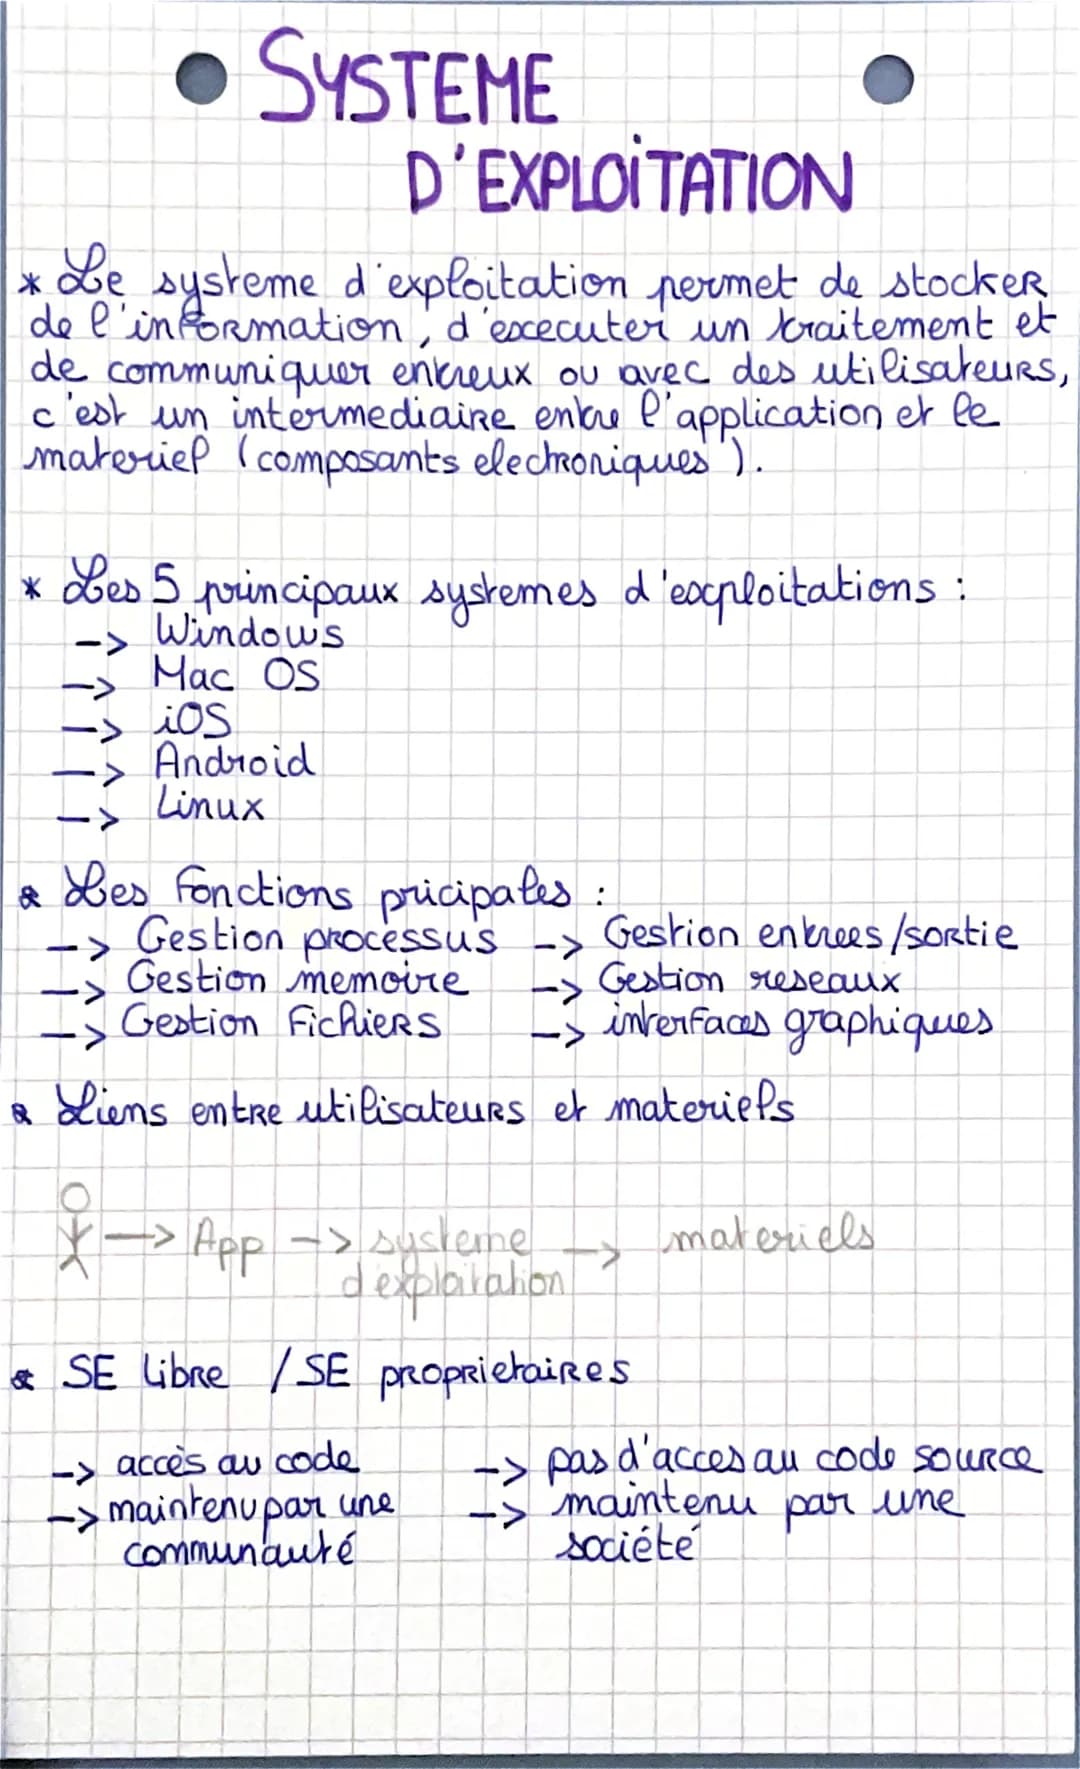 SYSTEME
D'EXPLOITATION
* Le systeme d'exploitation permet de stocker
de l'information, d'executer un traitement et
de communiquer entreux ou avec des utilisateurs,
c'est un intermediaire entre l'application et le
materiel (composants electroniques).
* Les 5 principaux systemes d'exploitations :
-> Windows
-> Mac OS
-> iOS
-> Android
-> Linux
* Les fonctions pricipales :
-> Gestion processus -> Gestion entrees/sortie
-> Gestion memoire -> Gestion reseaux
-> Gestion Fichiers -> interfaces graphiques
* Liens entre utilisateurs et materiels
-> App -> systeme -> materiels
d'exploitation
* SE Libre / SE proprietaires
-> accès au code -> pas d'acces au code source
-> maintenu par une -> maintenu par une
communauté société